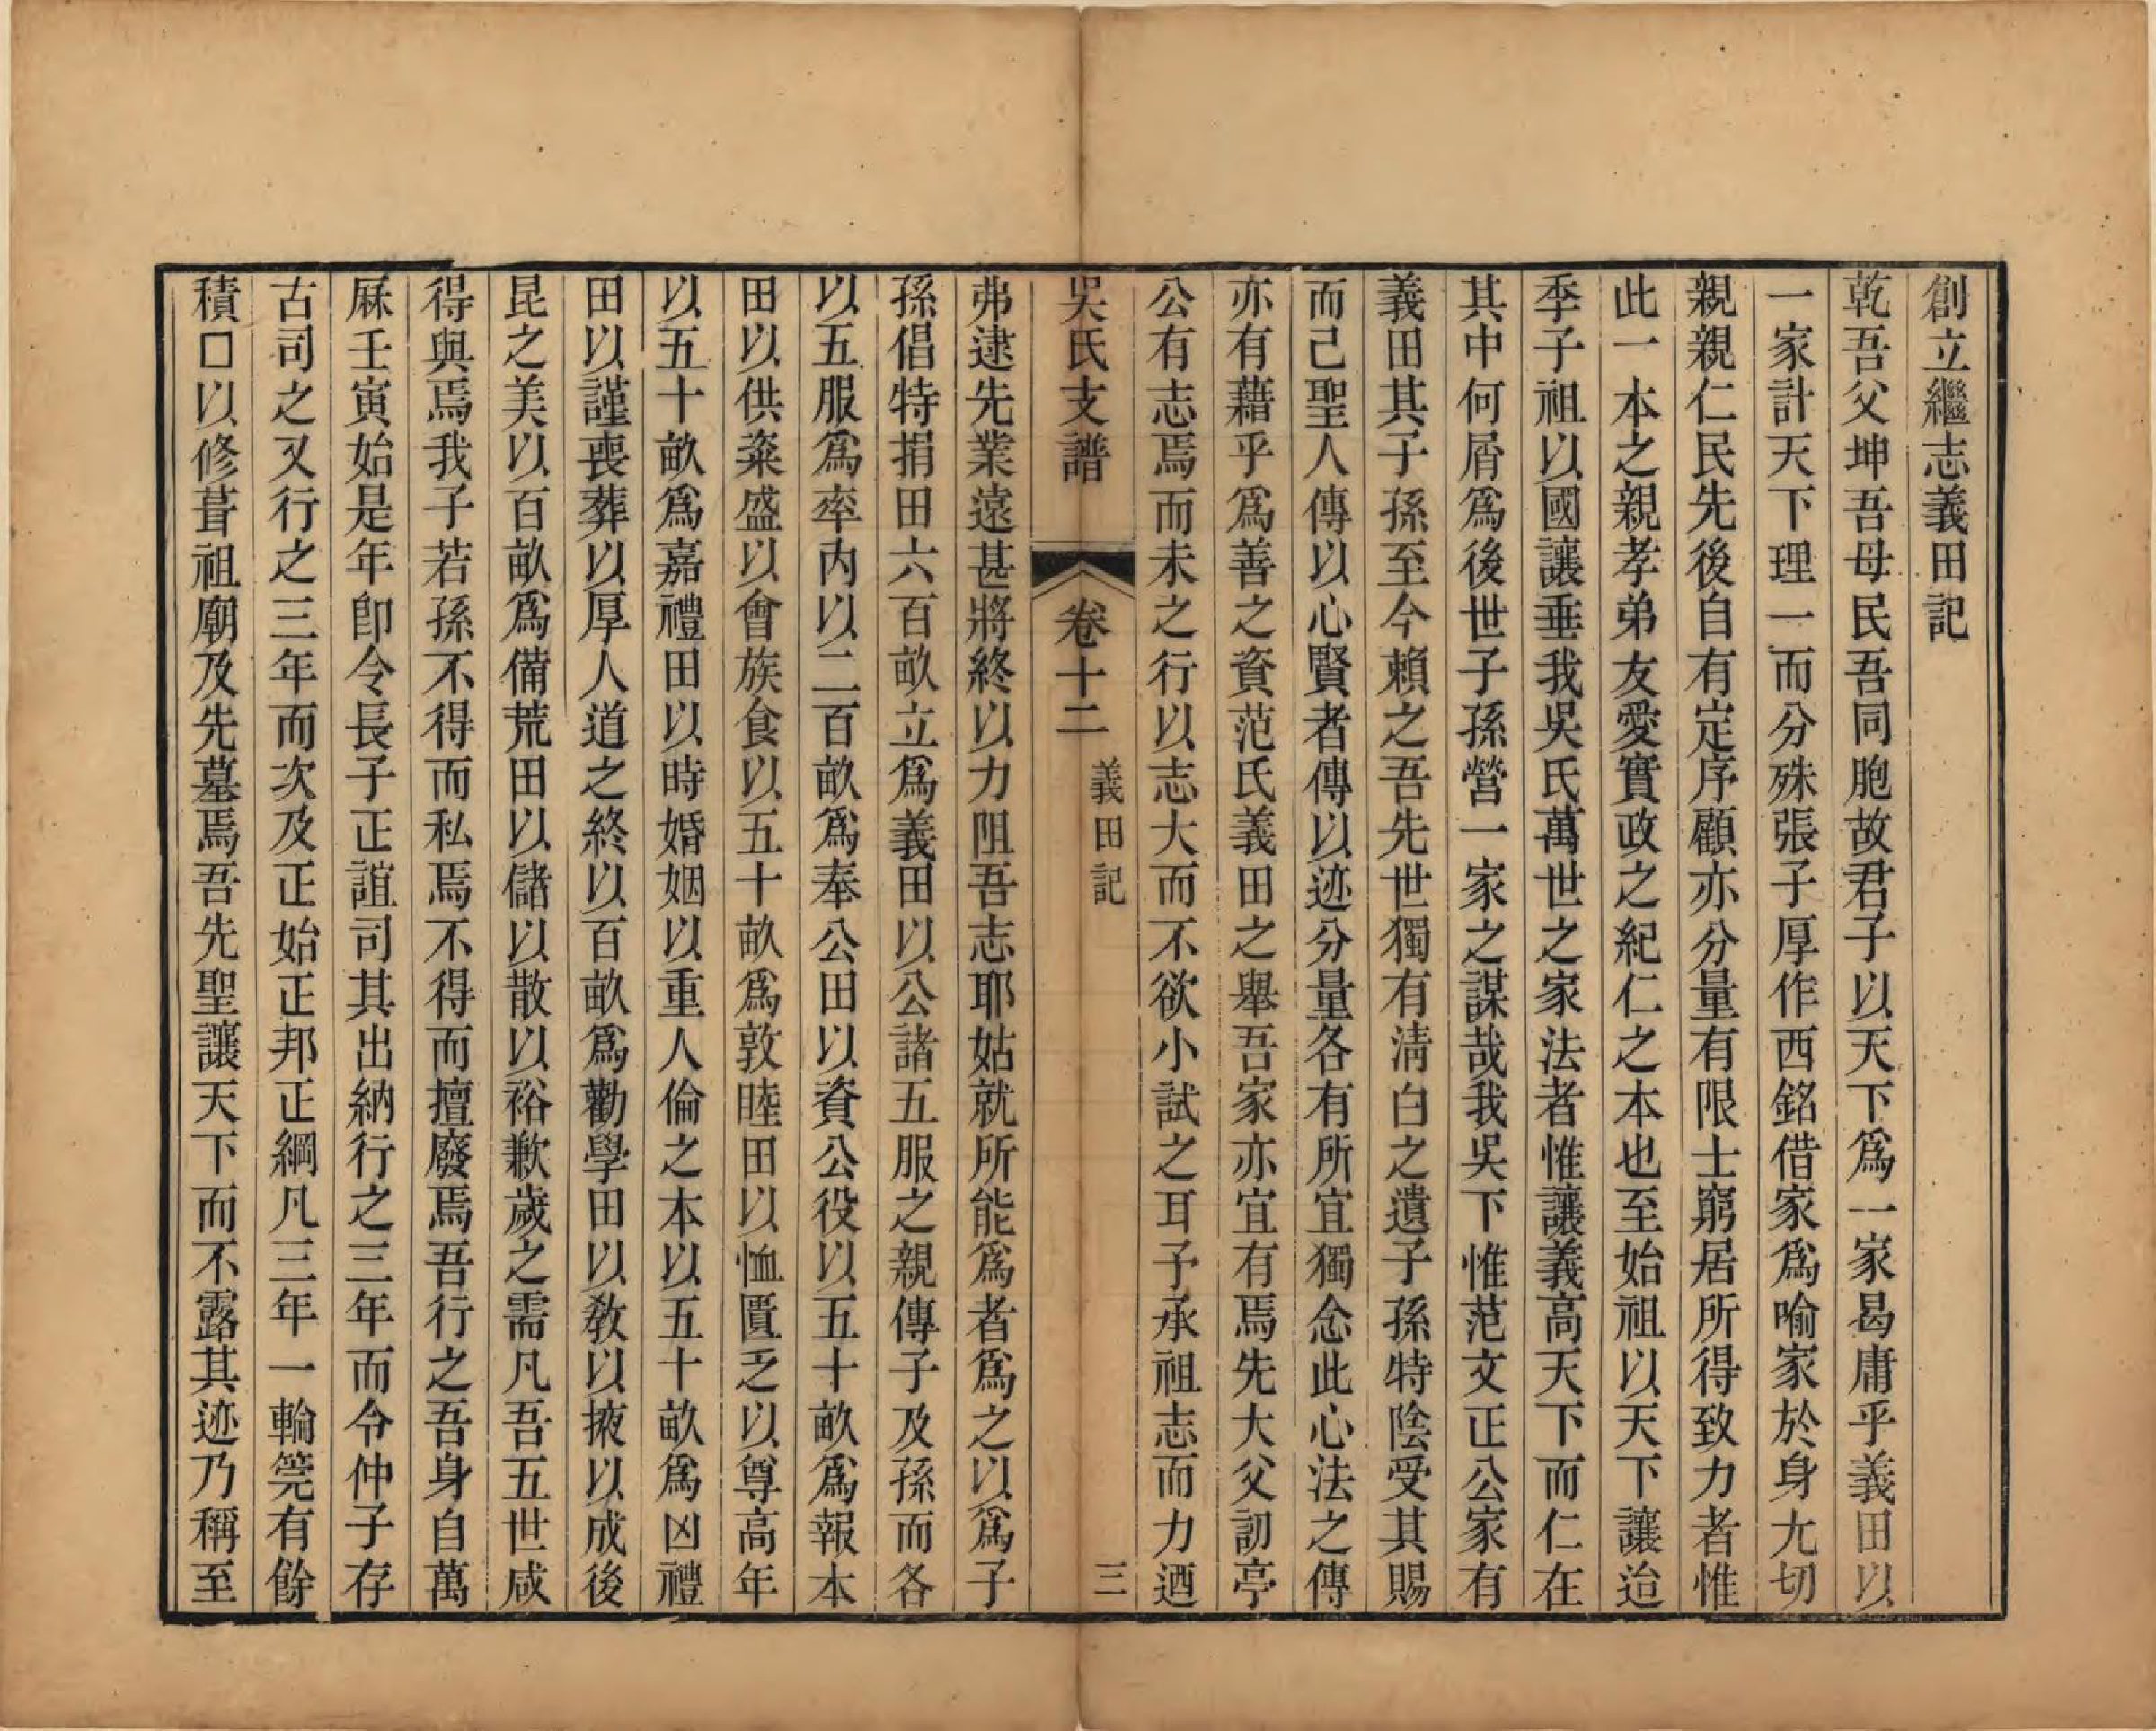 創立繼志義田記
乾吾父坤吾母民吾同胞故君子以天下爲一家曷庸乎義田以
一家計天下理一而分殊張子厚作西銘借家爲喻家於身尤切
親親仁民先後自有定序顧亦分量有限士窮居所得致力者惟
此一本之親孝弟友愛實政之紀仁之本也至始祖以天下讓迨
季子祖以國讓垂我吳氏萬世之家法者惟讓義高天下而仁在
其中何屑爲後世子孫營一家之謀哉我吳下惟范文正公家有
義田其子孫至今賴之吾先世獨有淸白之遺子孫特陰受其賜
而己聖人傳以心賢者傳以迹分量各有所宜獨念此心法之傳
亦有藉乎爲善之資范氏義田之舉吾家亦宜有焉先大父訒亭
公有志焉而未之行以志大而不欲小試之耳予承祖志而力迺
吳氏支譜 卷十二 義田記 三
弗逮先業遠甚將終以力阻吾志耶姑就所能爲者爲之以爲子
孫倡特捐田六百畝立爲義田以公諸五服之親傳子及孫而各
以五服爲率內以二百畝爲奉公田以資公役以五十畝爲報本
田以供粢盛以會族食以五十畝爲敦睦田以恤匱乏以尊高年
以五十畝爲嘉禮田以時婚姻以重人倫之本以五十畝爲凶禮
田以謹喪葬以厚人道之終以百畝爲勸學田以敎以掖以成後
昆之美以百畝爲備荒田以儲以散以裕歉歲之需凡吾五世咸
得與焉我子若孫不得而私焉不得而擅廢焉吾行之吾身自萬
厤壬寅始是年卽令長子正誼司其出納行之三年而令仲子存
古司之又行之三年而次及正始正邦正綱凡三年一輪筦有餘
積□以修葺祖廟及先墓焉吾先聖讓天下而不露其迹乃稱至